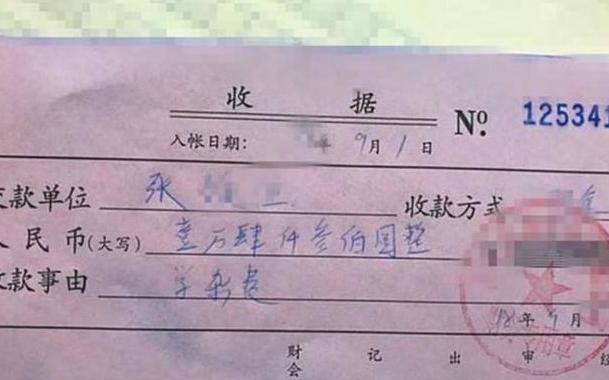 收据
入帐日期: 年 9月1日
№ 125341
款单位 张
收款方式
人民币(大写) 壹万肆仟参佰圆整
收款事由 学杂费
年 9月
财会 记 出 审 经